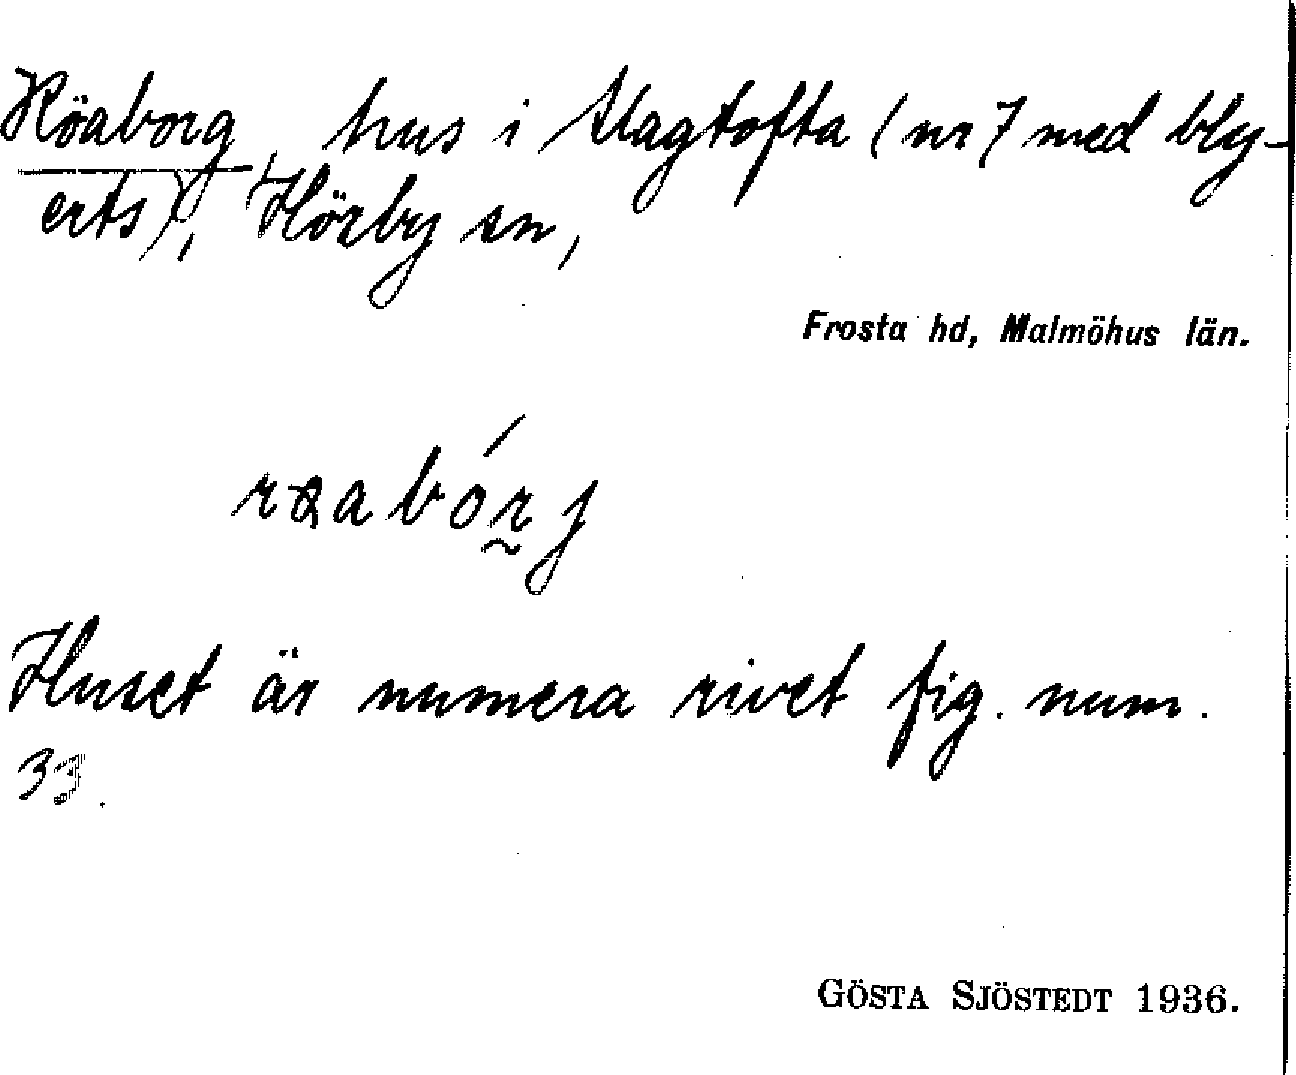 Röaborg, hus i Slagtofta (nr 7 med bly-
erts), Hörby sn,
Frosta hd, Malmöhus län.
Huset är numera rivet fig. num.
33.
GÖSTA SJÖSTEDT 1936.